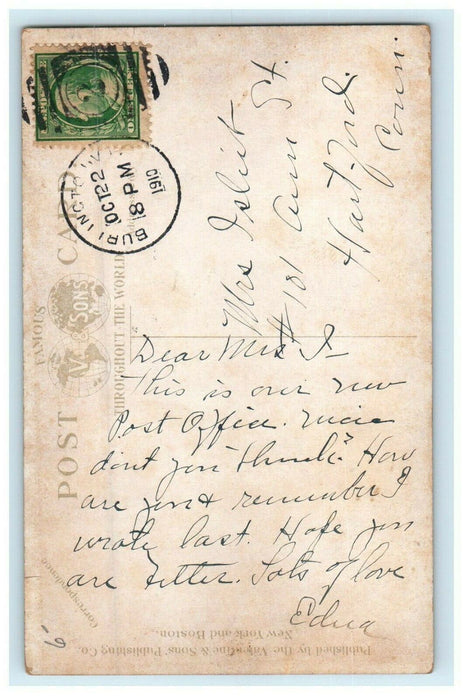 BURLINGTO
OCT 22
8 PM
1910
2
POST CARD
FAMOUS
V. & SONS
THROUGHOUT THE WORLD
Mrs Isliet
# 181 Ann St.
Hartford
Conn.
Dear Mrs I-
This is our new
Post Office. nice
dont you think? How
are you & remember I
wrote last. Hope you
are better. Lots of love
Edna
Correspondence
Published by the Valentine & Sons' Publishing Co.
New York and Boston.